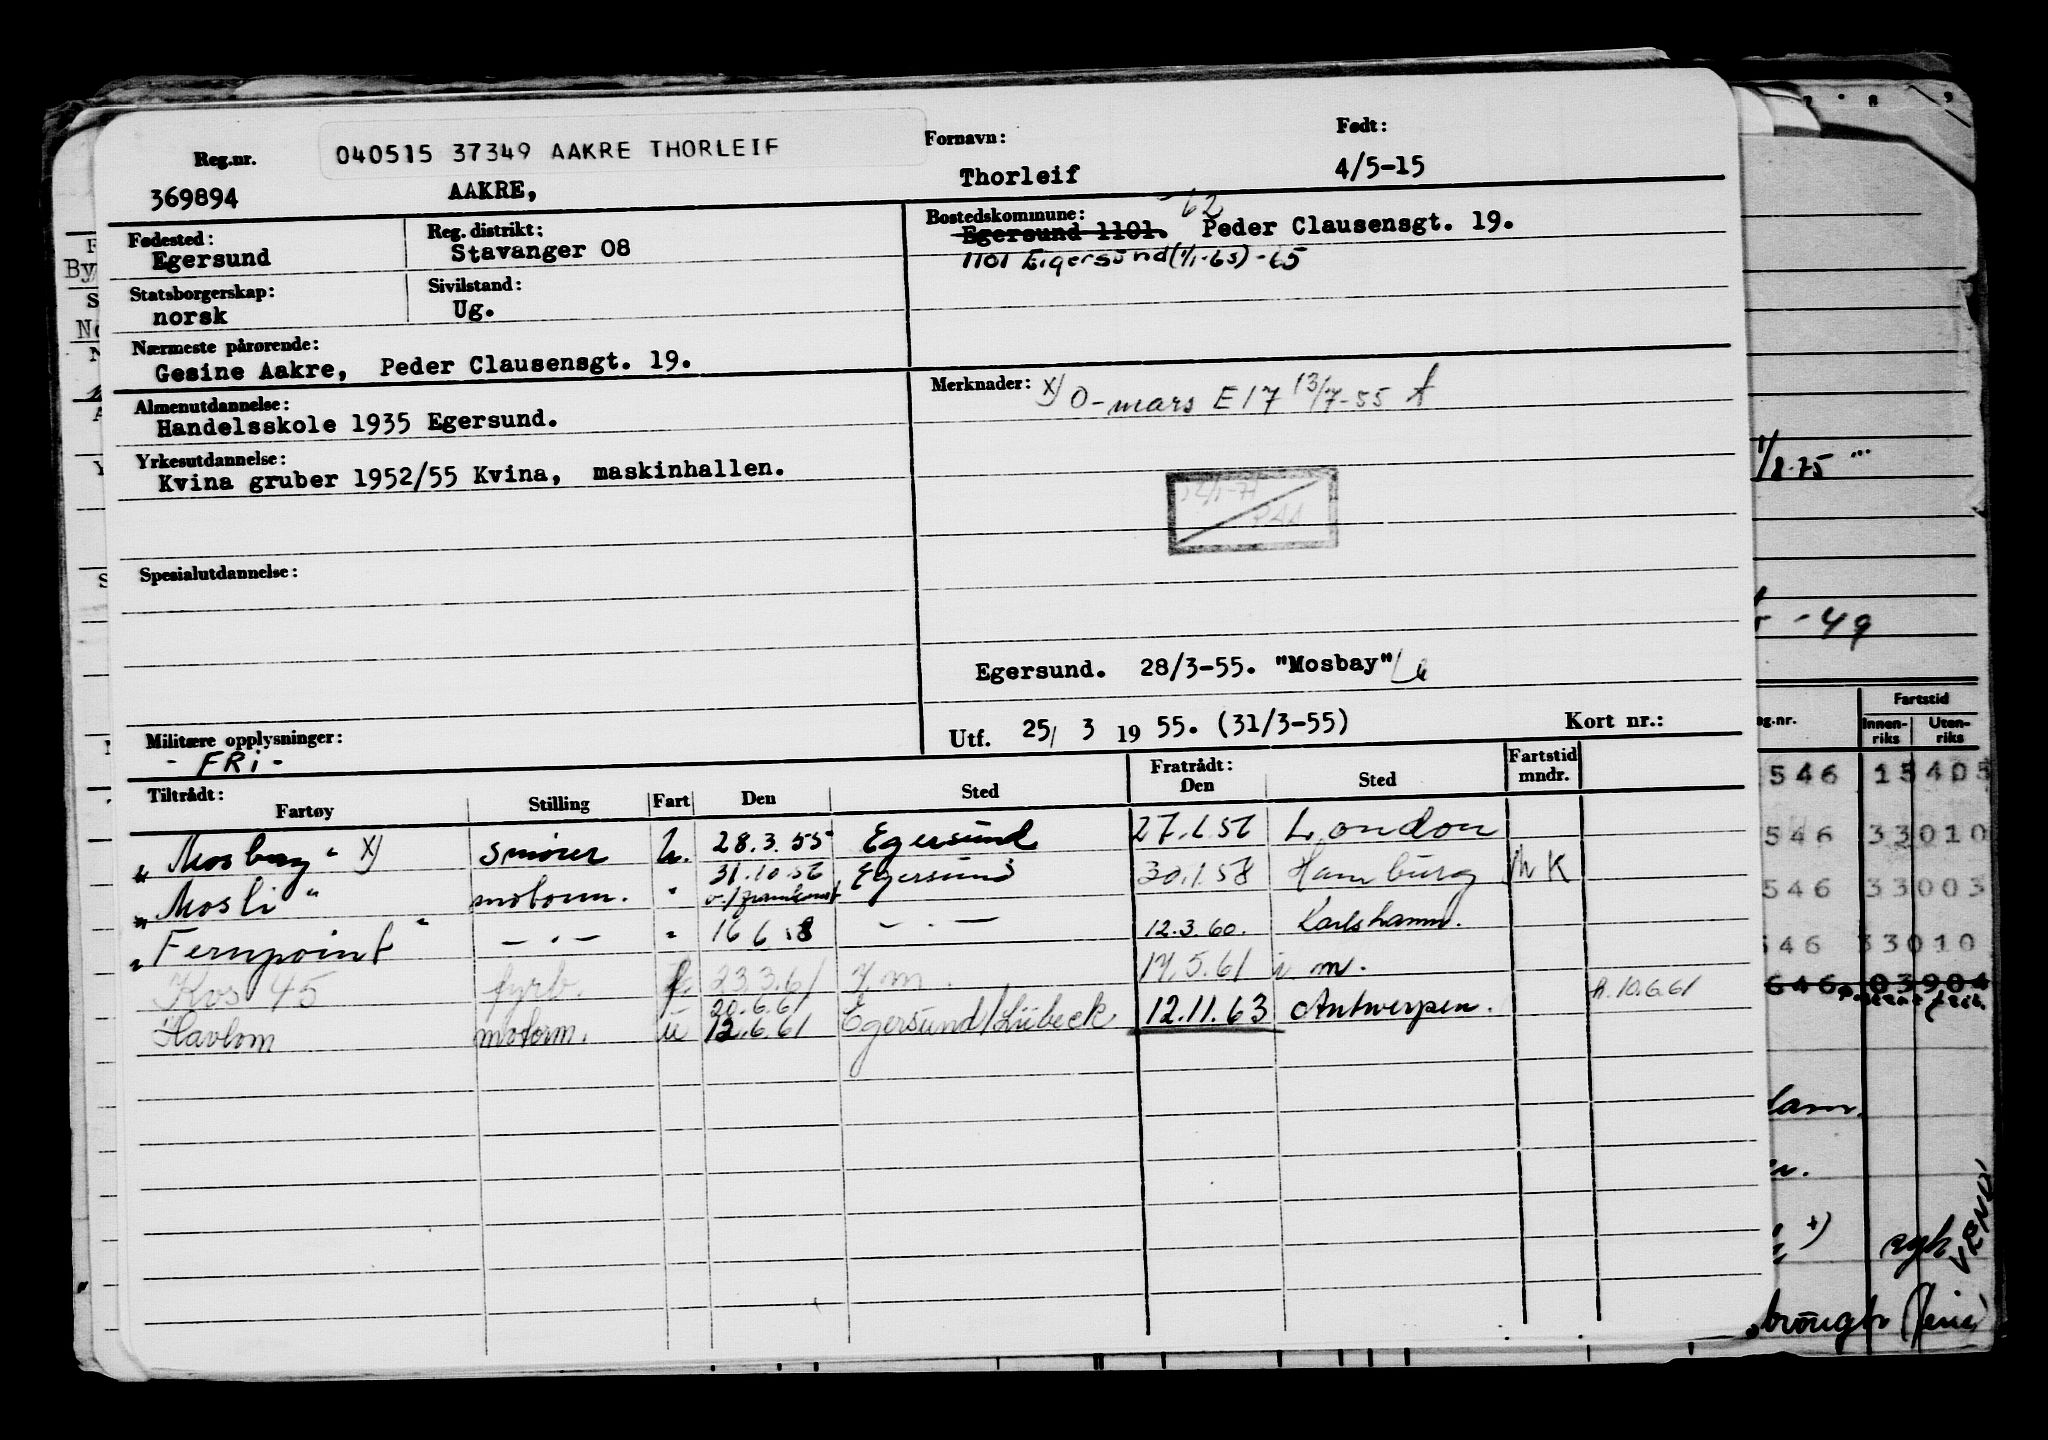 Reg.nr. 040515 37349 AAKRE THORLEIF Fornavn: Født:
369894 AAKRE, Thorleif 4/5-15
Fødested: Reg. distrikt: Bostedskommune: -62
Egersund Stavanger 08 Egersund 1101. Peder Clausensgt. 19.
1101 Eigersund (1/1-65) -65
Statsborgerskap: Sivilstand:
norsk Ug.
Nærmeste pårørende:
Gesine Aakre, Peder Clausensgt. 19.
Almenutdannelse: Merknader: X) O-mars E17 13/7-55
Handelsskole 1935 Egersund.
Yrkesutdannelse:
Kvina gruber 1952/55 Kvina, maskinhallen.
Spesialutdannelse:
Egersund. 28/3-55. "Mosbay"
Militære opplysninger: Utf. 25/ 3 1955. (31/3-55) Kort nr.:
- FRi -
Tiltrådt: Fratrådt: Fartstid
Fartøy Stilling Fart Den Sted Den Sted mndr.
"Mosbay" X) smører u. 28.3.55 Egersund 27.1.56 London
"Mosli" motorm. " 31.10.56 Egersund 30.1.58 Hamburg
"Fernpoint" — " — " 16 6 58 — " — 12.3.60. Karlshamn.
Kos 45 fyrb. f. 23.3.61 17.5.61
20.6.61 A. 10.6.61
Havlom motorm. u 12.6.61 Egersund/Lübeck 12.11.63 Antwerpen.
1/8-75
-49
Fartstid
Innen-riks Uten-riks
546 15405
546 33010
546 33003
546 33010
646 03904